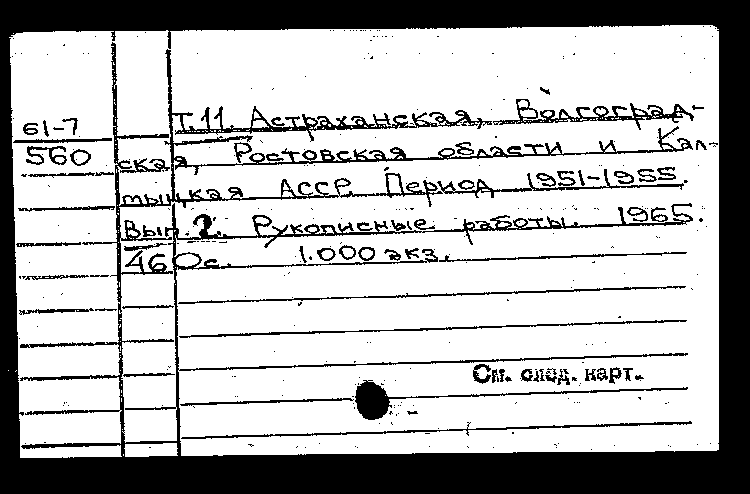 61-7
560
Т.11. Астраханская, Волгоград-
ская, Ростовская области и Кал-
мыцкая АССР. Период 1951-1955.
Вып. 2. Рукописные работы. 1965.
460с. 1.000 экз.
См. след. карт.